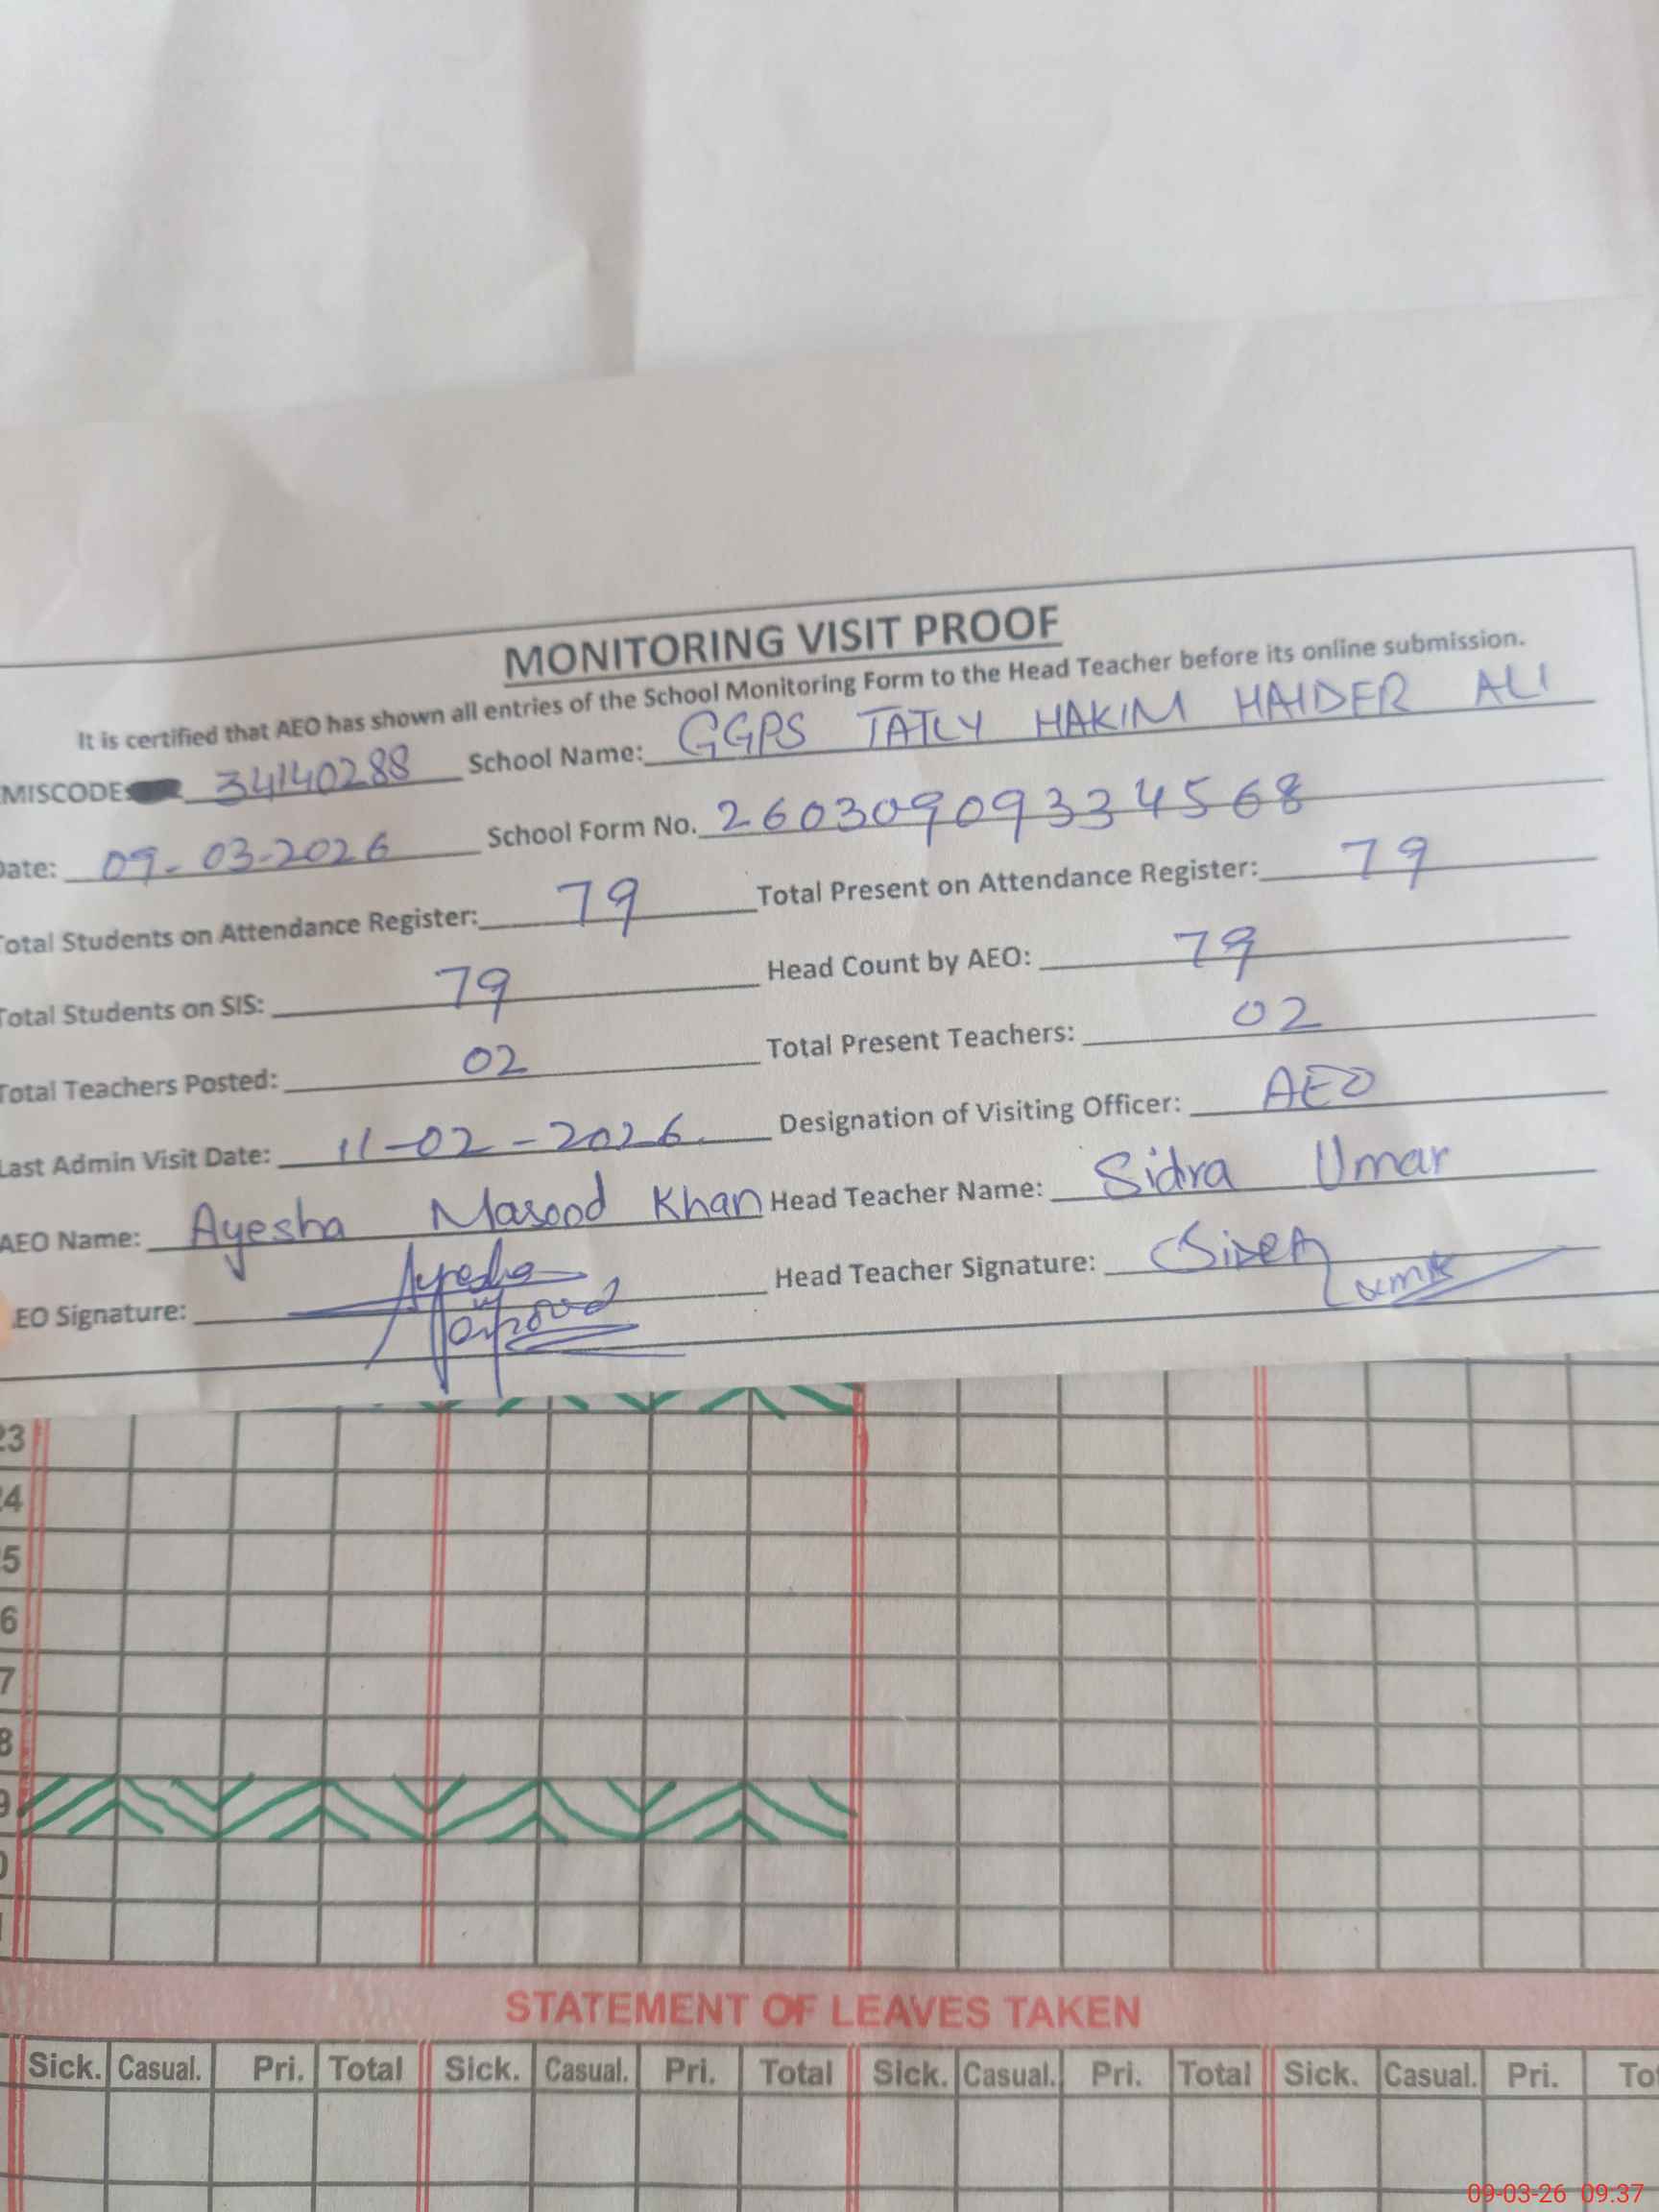 MONITORING VISIT PROOF
It is certified that AEO has shown all entries of the School Monitoring Form to the Head Teacher before its online submission.
MISCODE 34140288 School Name: GGPS TATLY HAKIM HAIDER ALI
Date: 09-03-2026 School Form No. 26030909334568
Total Students on Attendance Register: 79 Total Present on Attendance Register: 79
Total Students on SIS: 79 Head Count by AEO: 79
Total Teachers Posted: 02 Total Present Teachers: 02
Last Admin Visit Date: 11-02-2026 Designation of Visiting Officer: AEO
AEO Name: Ayesha Masood Khan Head Teacher Name: Sidra Umar
EO Signature: Ayesha Head Teacher Signature: Sidra
23
24
5
6
7
8
9
0
STATEMENT OF LEAVES TAKEN
Sick. Casual. Pri. Total Sick. Casual. Pri. Total Sick. Casual. Pri. Total Sick. Casual. Pri. To
09-03-26 09:37